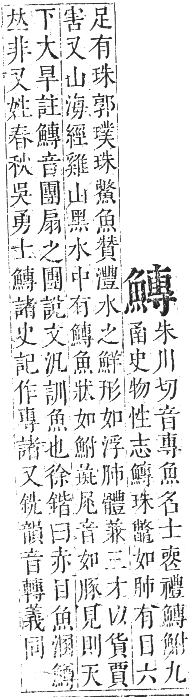 鱄
朱川切音專魚名士喪禮鱄鮒九
甬史物性志鱄珠鼈如肺有目六
足有珠郭璞珠鱉魚贊澧水之鮮形如浮肺體兼三才以貨賈
害又山海經雞山黑水中有鱄魚狀如鮒彘尾音如豚見則天
下大旱註鱄音團扇之團說文汎訓魚也徐鍇曰赤目魚潤鱄
㕤非又姓春秋吳勇士鱄諸史記作專諸又銑韻音轉義同